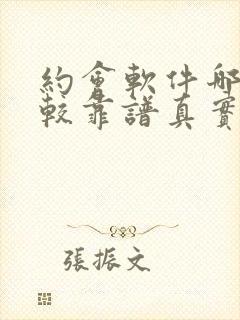 約會軟件哪
較靠譜真實
張振文